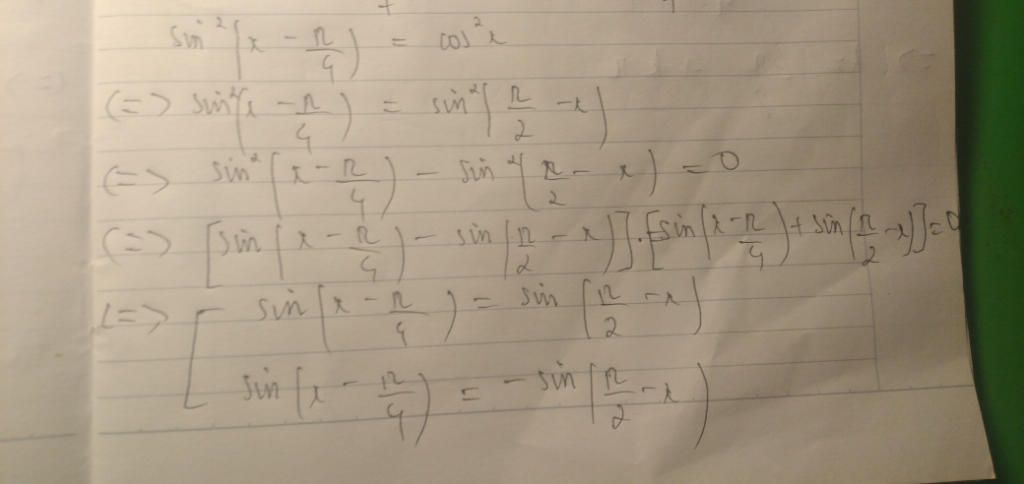 sin²(x - π/4) = cos²x
<=> sin²(x - π/4) = sin²(π/2 - x)
<=> sin²(x - π/4) - sin²(π/2 - x) = 0
<=> [sin(x - π/4) - sin(π/2 - x)].[sin(x - π/4) + sin(π/2 - x)] = 0
<=> [ sin(x - π/4) = sin(π/2 - x)
sin(x - π/4) = - sin(π/2 - x)